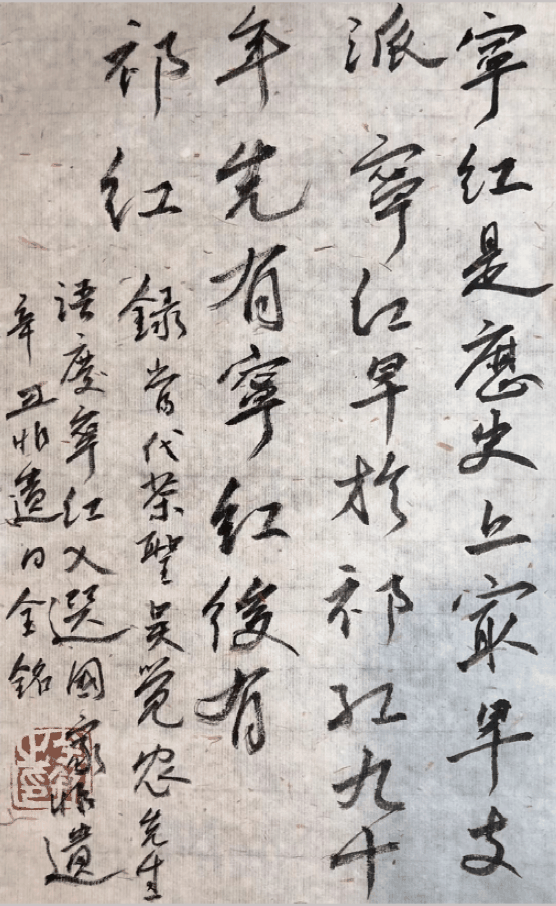 寧红是歷史上寂早支
派寧红早於祁红九十
年先有寧红後有
祁红
錄當代茶聖吴覺农先生
語慶寧红入選國家非遺
辛丑非遺日金銘